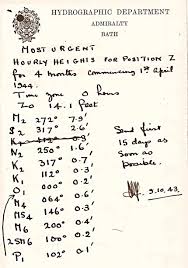 HYDROGRAPHIC DEPARTMENT
ADMIRALTY
BATH
MOST URGENT
HOURLY HEIGHTS FOR POSITION Z
for 4 months commencing 1st April
1944.
Time zone 0 hours
Zo 14.1 feet
M2 272° 7.9'
S2 317° 2.6'
N2 250° 1.5'
K2 317° 0.7'
K1 112° 0.3'
O1 000° 0.2'
M4 064° 0.6'
MS4 146° 0.4'
M6 200° 0.2'
2SM6 100° 0.2'
P1 102° 0.1'
Send first
15 days as
soon as
possible.
9.10.43